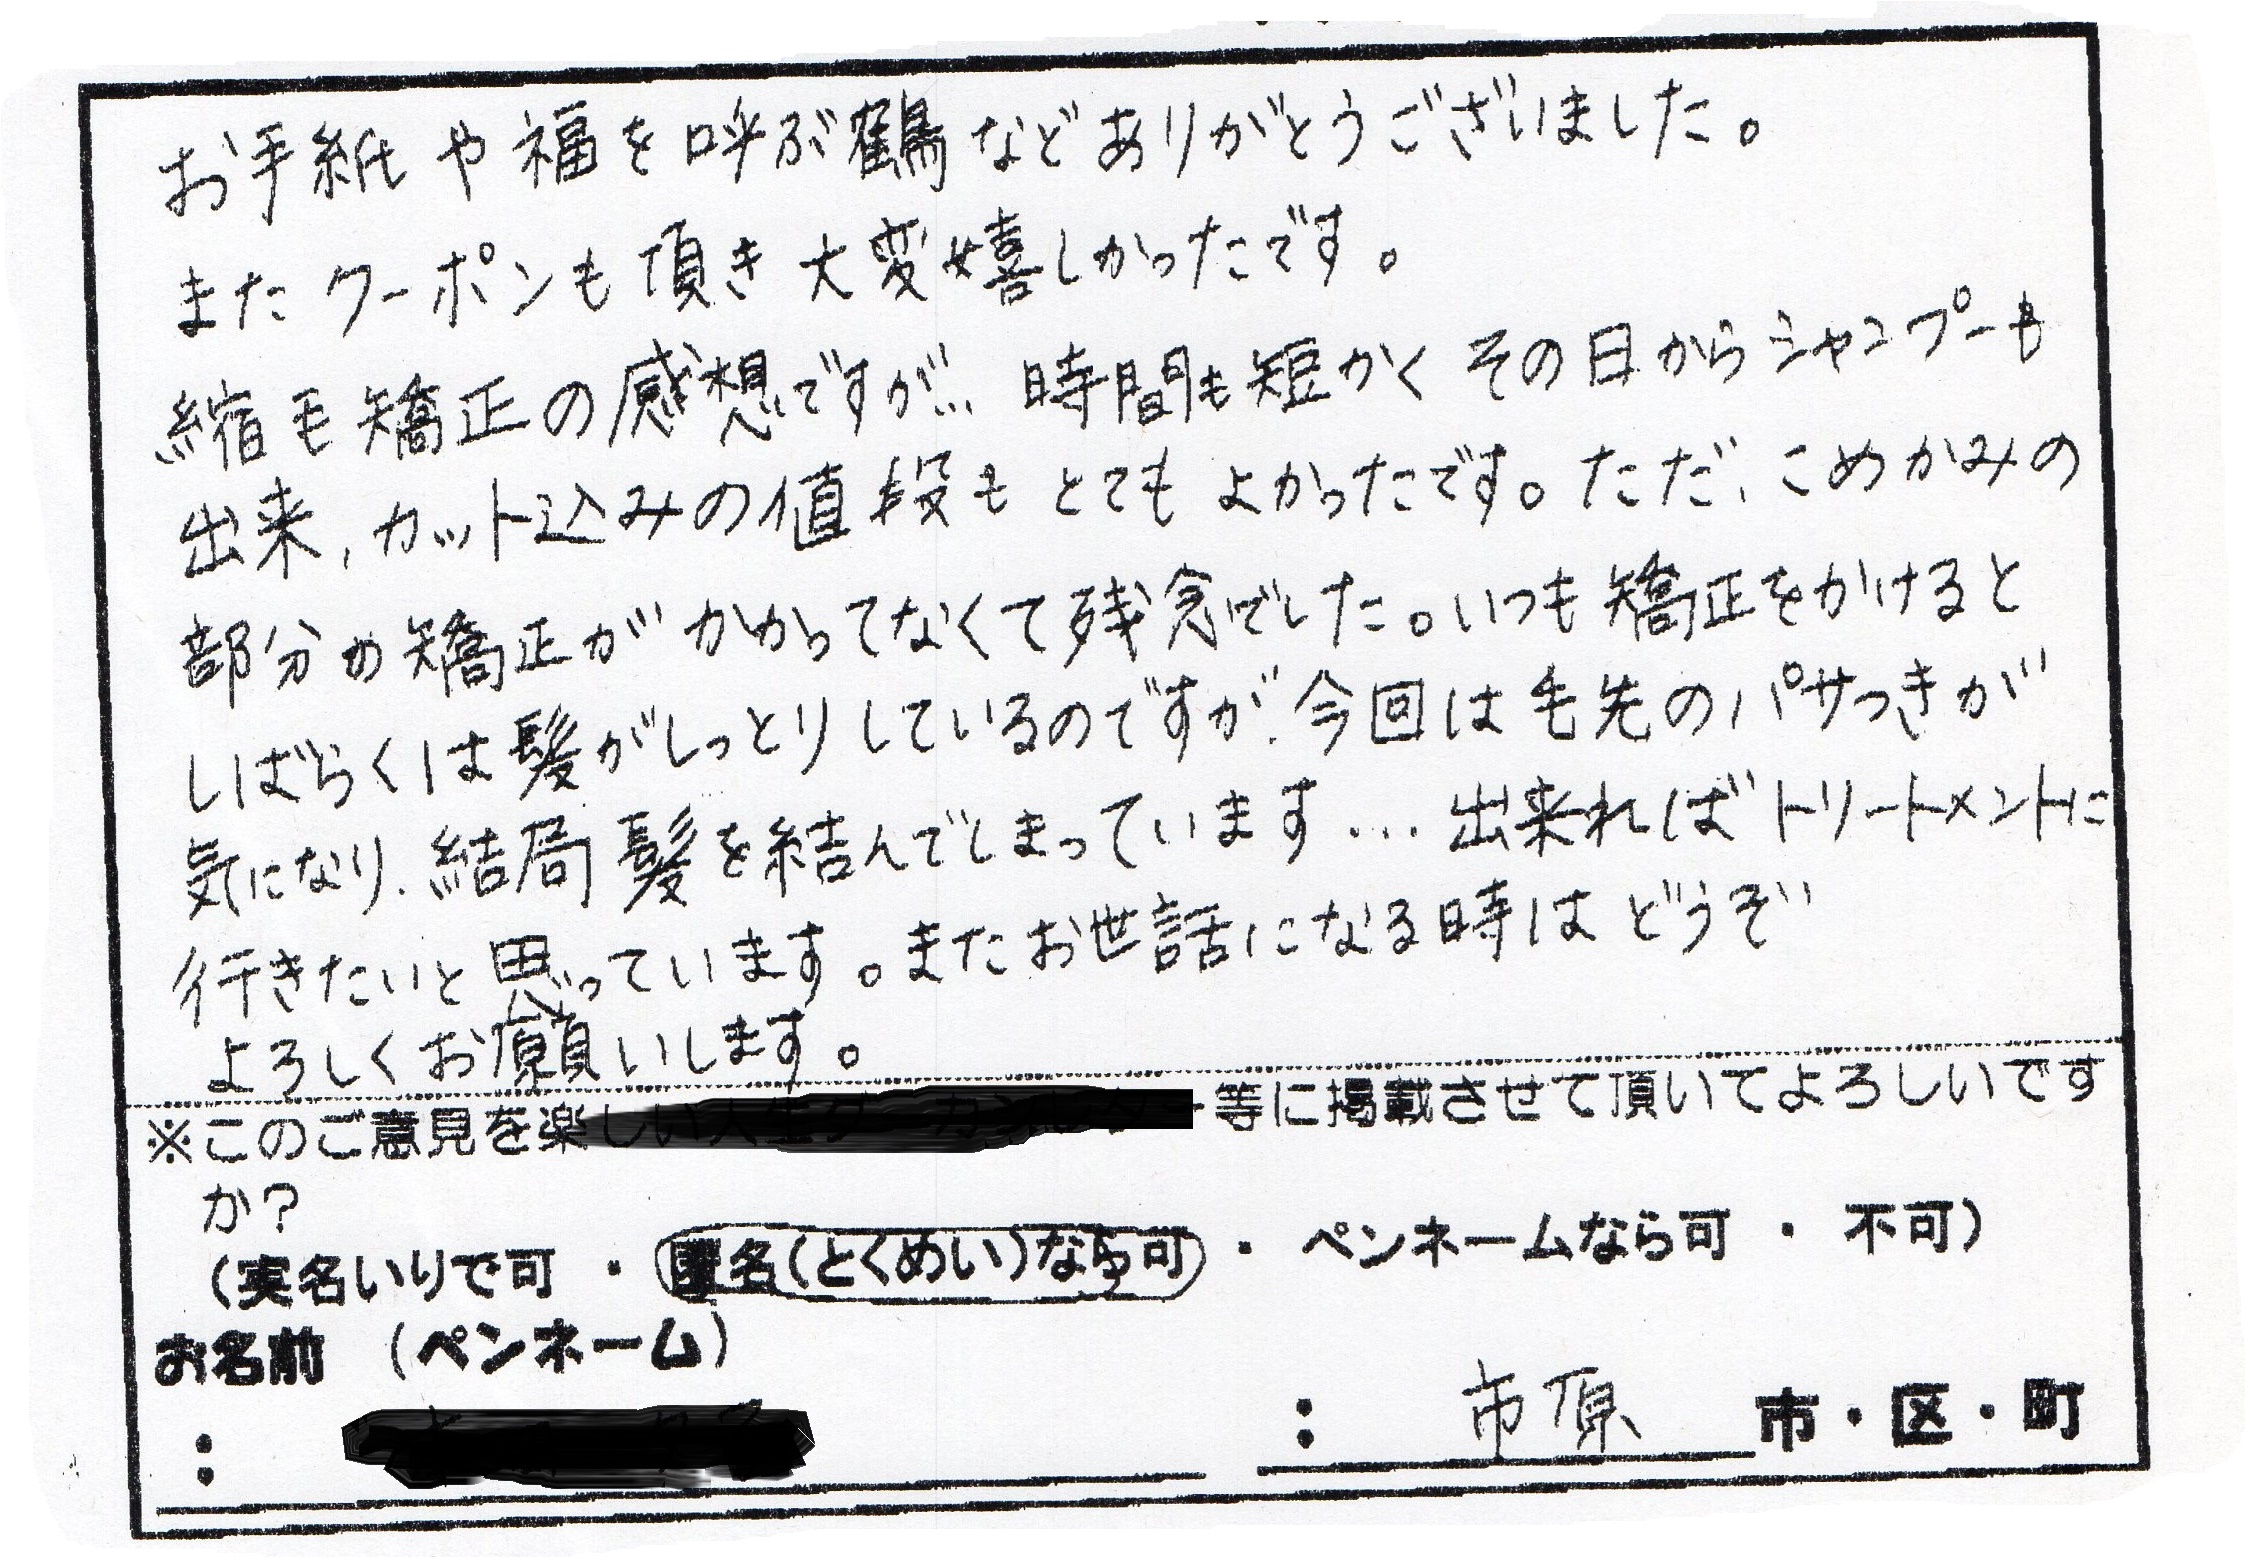 お手紙や福を呼ぶ鶴などありがとうございました。
またクーポンも頂き大変嬉しかったです。
縮毛矯正の感想ですが、時間も短かくその日からシャンプーも
出来、カット込みの値段もとてもよかったです。ただ、こめかみの
部分の矯正がかかってなくて残念でした。いつも矯正をかけると
しばらくは髪がしっとりしているのですが、今回は毛先のパサつきが
気になり、結局髪を結んでしまっています…出来ればトリートメントに
行きたいと思っています。またお世話になる時はどうぞ
よろしくお願いします。
※このご意見を楽 等に掲載させて頂いてよろしいです
か?
(実名いりで可 ・ 匿名(とくめい)なら可 ・ ペンネームなら可 ・ 不可)
お名前 (ペンネーム)
: : 市原 市・区・町